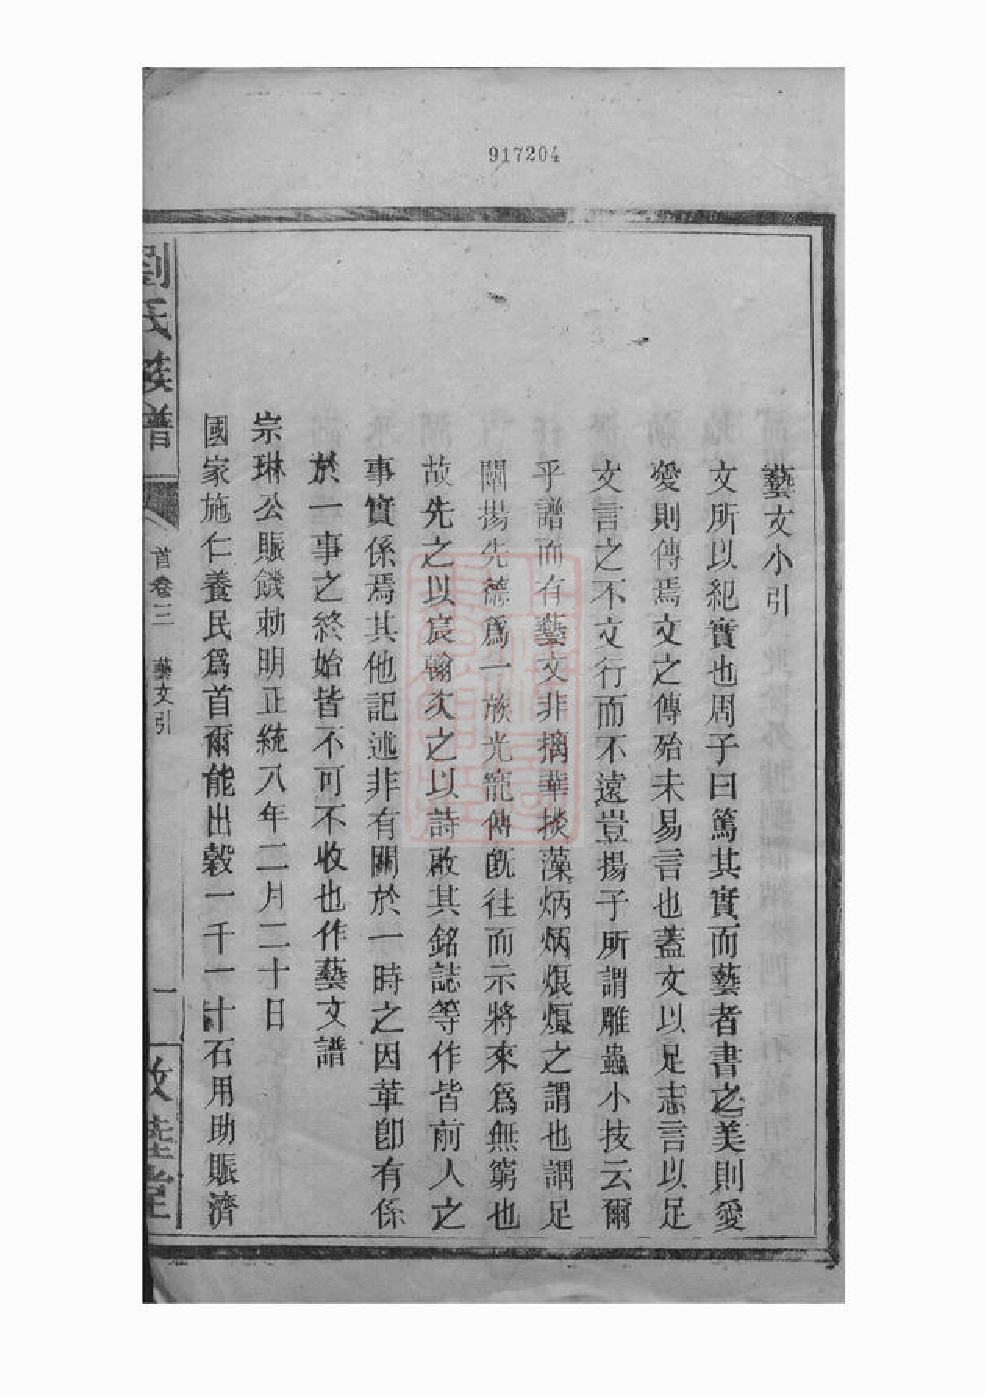 917204
藝文小引
文所以紀實也周子曰篤其實而藝者書之美則愛
愛則傳焉文之傳殆未易言也蓋文以足志言以足
文言之不文行而不遠豈揚子所謂雕蟲小技云爾
乎譜而有藝文非摛華掞藻炳炳烺烺之謂也謂足
闡揚先德爲一族光寵傳旣往而示將來爲無窮也
故先之以宸翰次之以詩啟其銘誌等作皆前人之
事實係焉其他記述非有關於一時之因革卽有係
於一事之終始皆不可不收也作藝文譜
宗琳公賑饑勅明正統八年二月二十日
國家施仁養民爲首爾能出穀一千一十石用助賑濟
劉氏族譜
首卷三 藝文引
一
敦睦堂